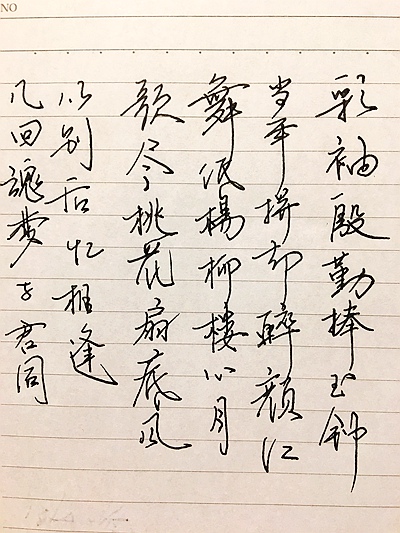 NO
彩袖殷勤捧玉钟
当年拚却醉颜红
舞低杨柳楼心月
歌尽桃花扇底风
从别后忆相逢
几回魂梦与君同